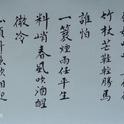 竹杖芒鞋輕勝馬
誰怕
一蓑煙雨任平生
料峭春風吹酒醒
微冷
山頭斜照卻相